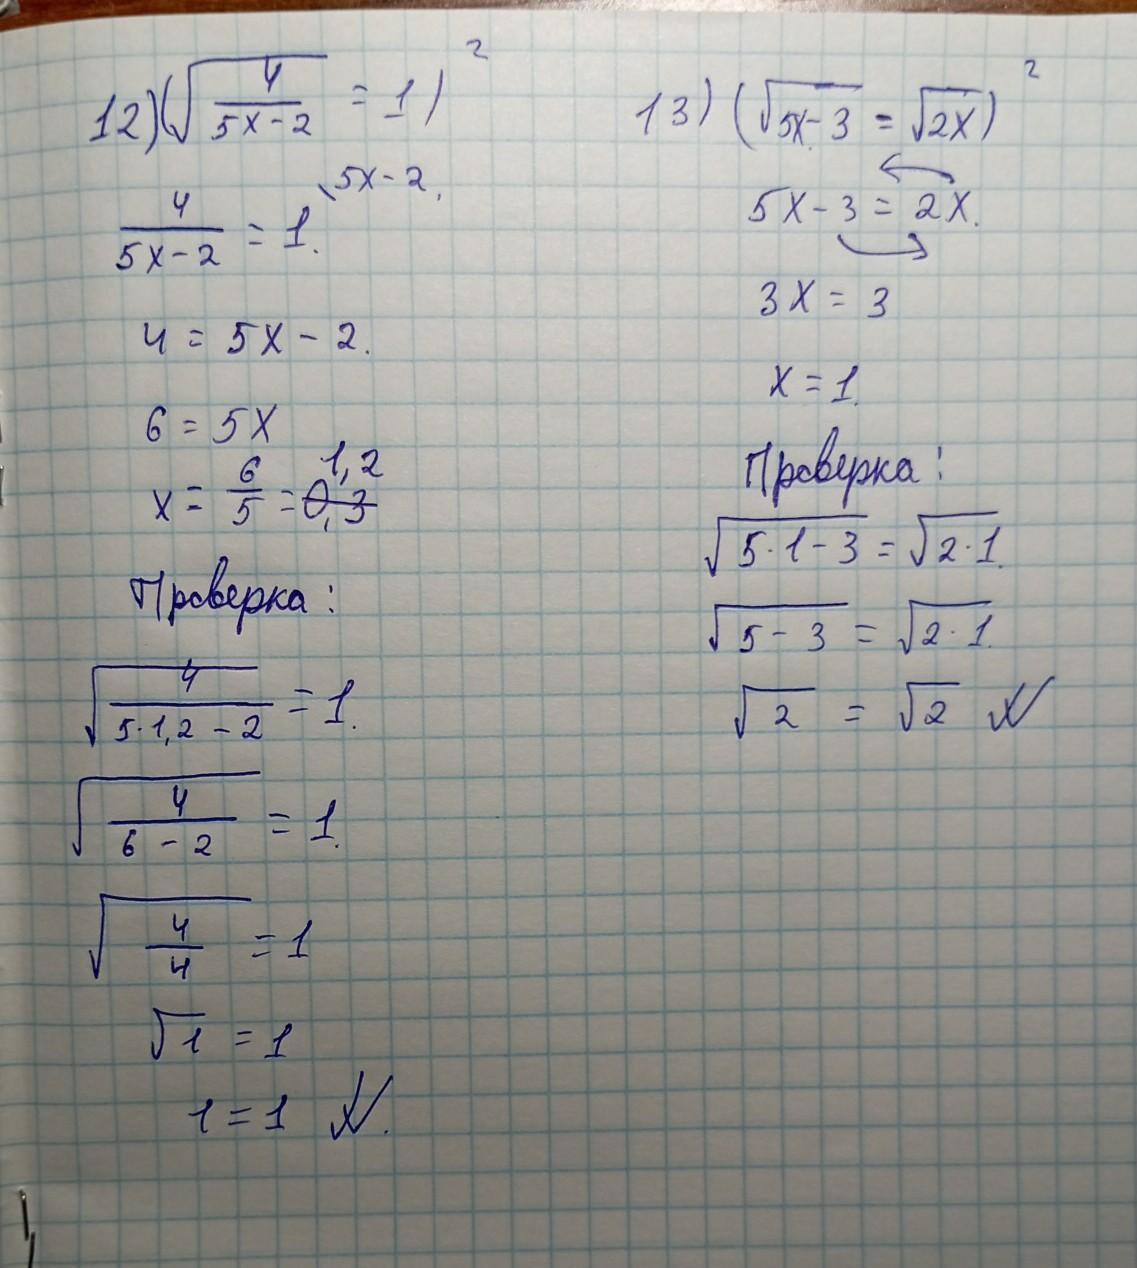 12) (√(4/(5x-2)) = 1)²
4/(5x-2) = 1. \5x-2,
4 = 5x - 2.
6 = 5x
x = 6/5 = 0,3 1,2
Проверка:
√(4/(5·1,2-2)) = 1.
√(4/(6-2)) = 1.
√(4/4) = 1
√1 = 1
1 = 1 V.
13) (√(5x-3) = √(2x))²
5x - 3 = 2x.
3x = 3
x = 1.
Проверка:
√(5·1-3) = √(2·1).
√(5-3) = √(2·1).
√2 = √2 V